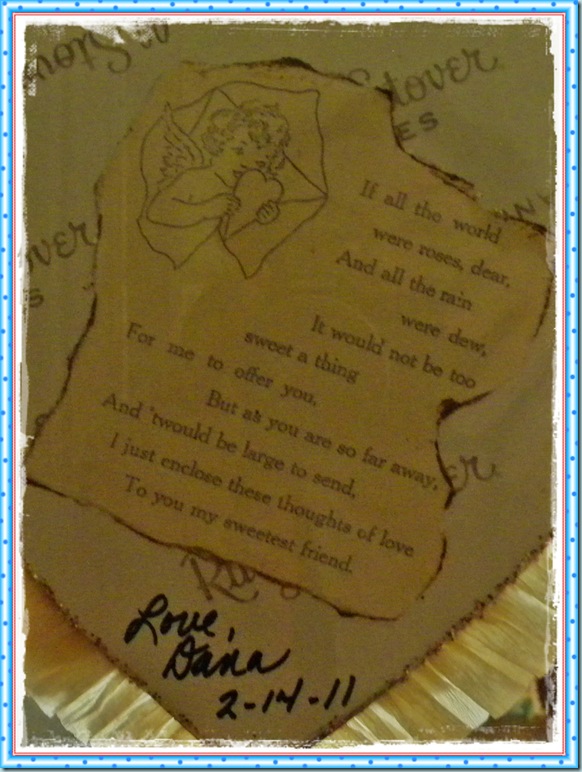 Stover
ES
If all the world
were roses, dear,
And all the rain
were dew,
It would not be too
sweet a thing
For me to offer you,
But as you are so far away,
And 'twould be large to send,
I just enclose these thoughts of love
To you my sweetest friend.
Love,
Dana
2-14-11